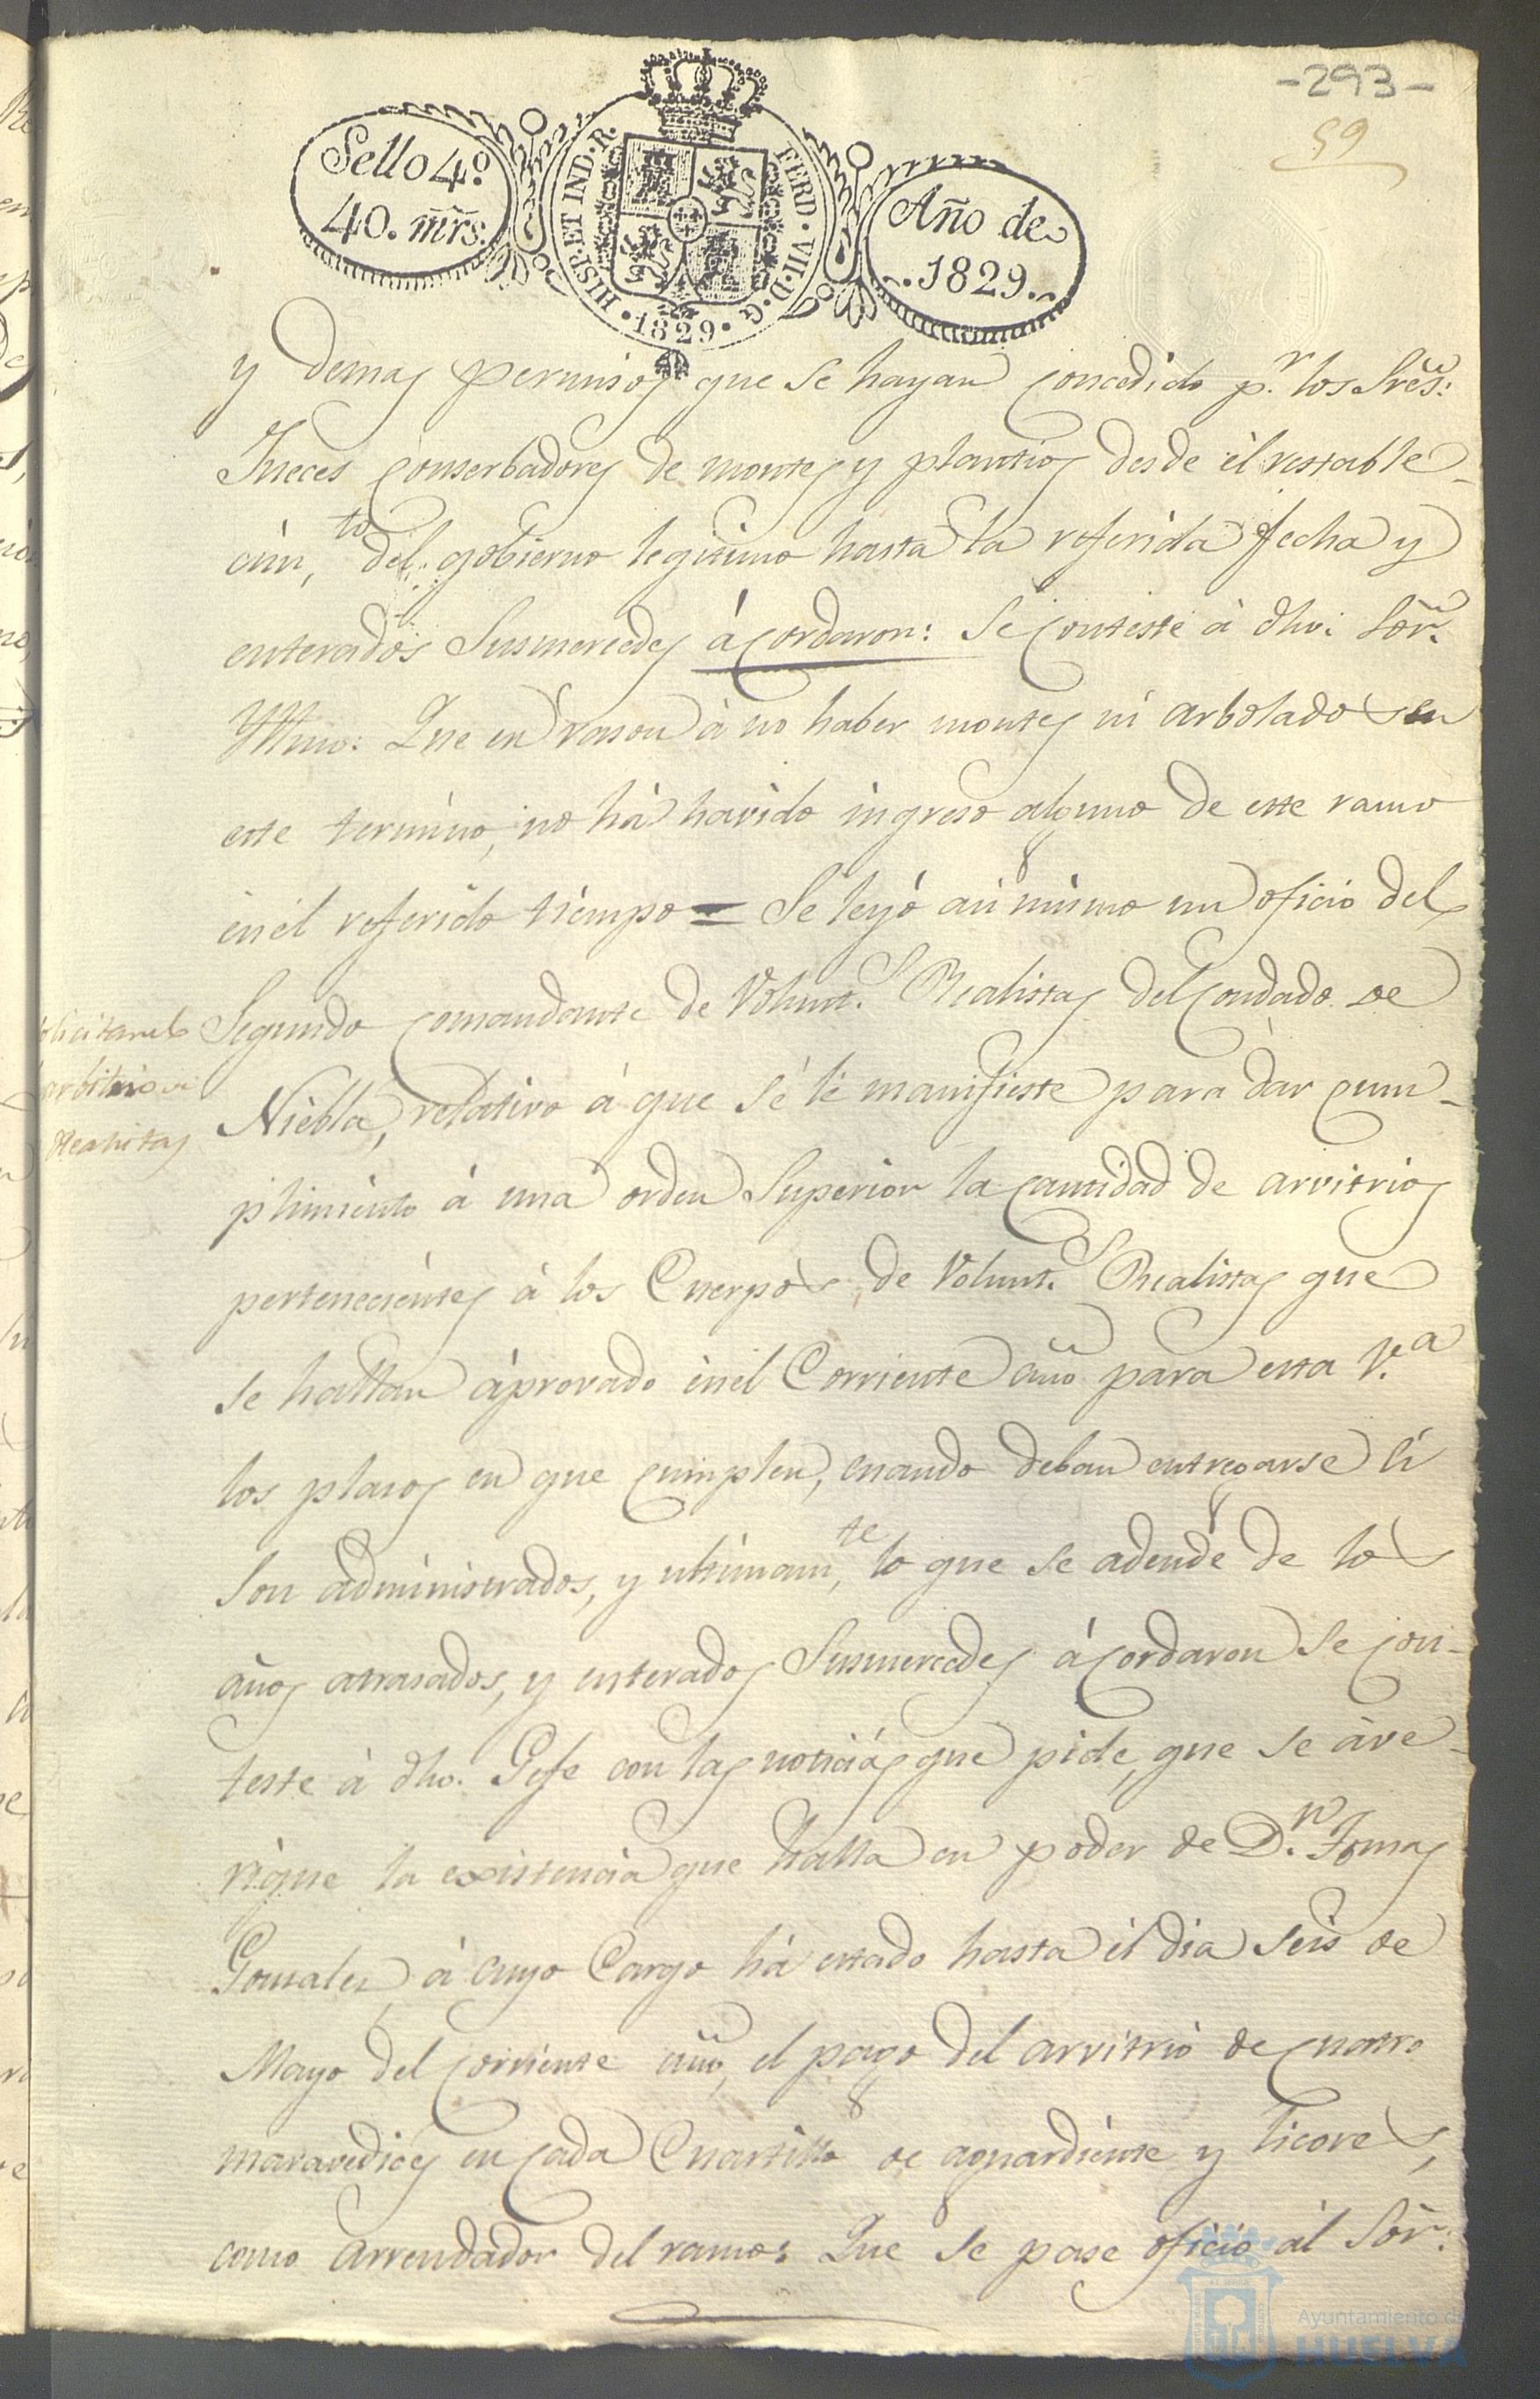 -293-
59
Sello 4º
40. mrs.
HISP. ET IND. R.
FERD. VII. D. G.
1829
Año de
1829.
y demas permisos que se hayan concedido p.r los Sres:
Jueces conserbadores de montes y plantios desde él restable-
cim,to del gobierno legitimo hasta la referida fecha y
enterados Susmercedes ácordaron: Se conteste à dho: Sõr.
Yttmo: Que en rason à no haber montes ni arbolados en
este termino, no há havido ingreso alguno de este ramo
en él referido tiempo = Se leyó asi mismo un oficio del
Segundo comandante de Volunt.s Realistas del Condado de
Niebla, relativo á que sé le manifieste para dar cum-
plimiento á una orden Superior la cantidad de arvitrios
pertenecientes á los Cuerpos de Volunt.s Realistas que
se hallan áprovado en el Corriente año para esta V.a
los plasos en que cumplen, cuando deban entregarse ú
son administrados, y ultimam,te lo que se adeude de los
años atrasados, y enterados Susmercedes ácordaron se con-
teste à dho. Gefe con las noticias que pide, que se ave-
rigue la existencia que halla en poder de D.n Tomas
Gonsales, á cuyo Cargo há estado hasta él dia seis de
Mayo del corriente año, el pago del arvitrio de cuatro
maravedices en cada Cuartillo de aguardiente y licores,
como arrendador del ramo: Que se pase oficio ál Sõr:
arbitrio
Realistas
Ayuntamiento de
HUELVA